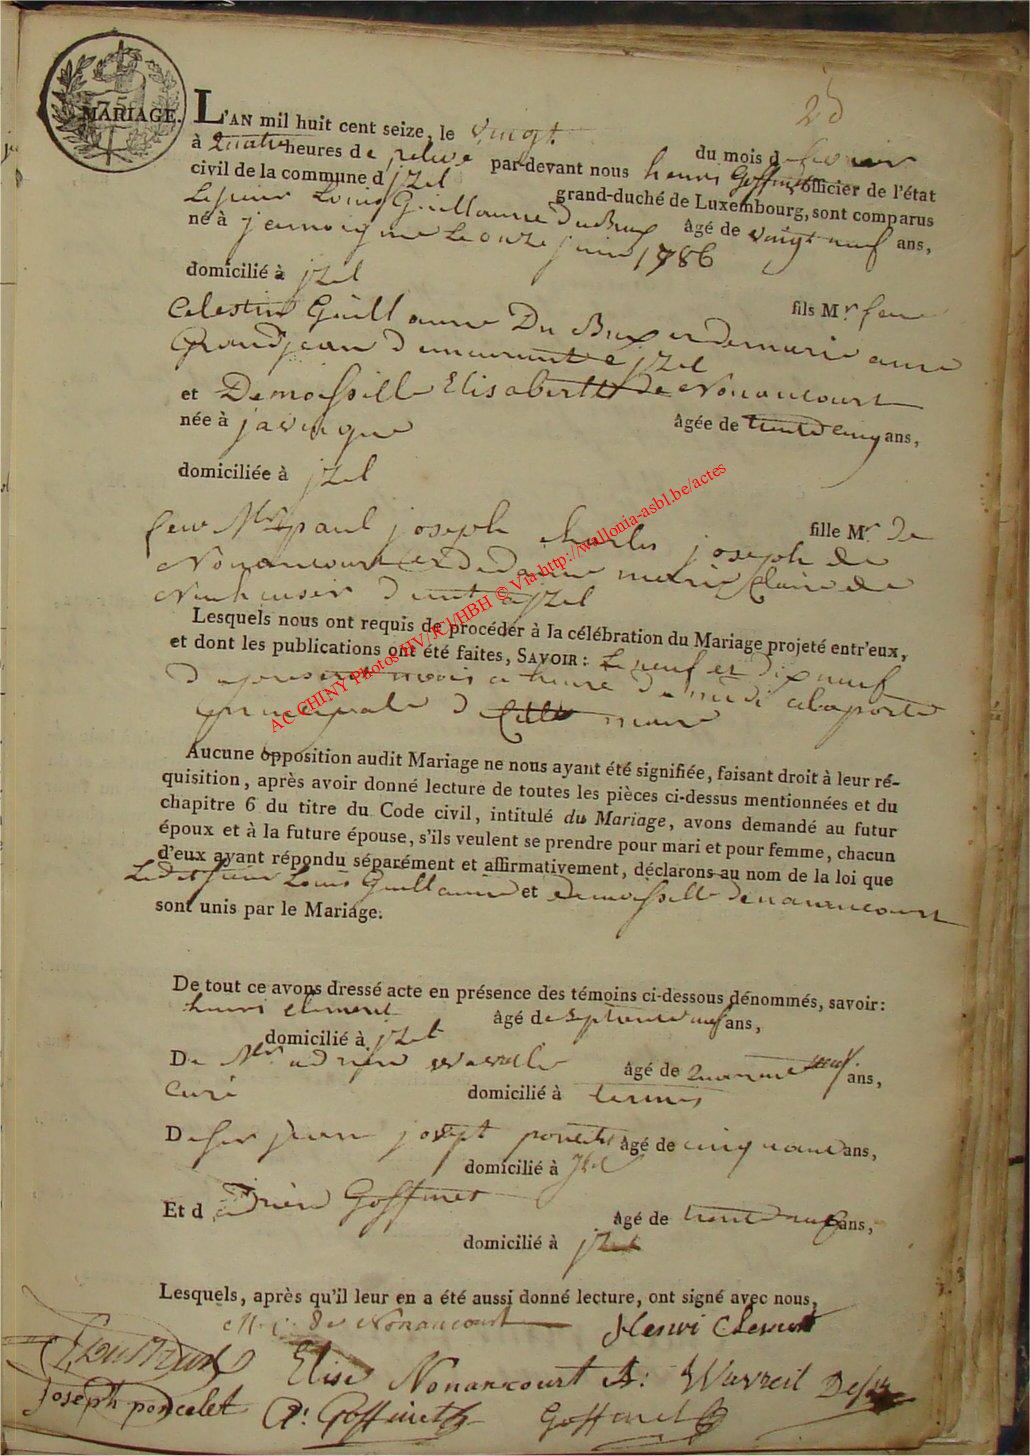 25
75
MARIAGE.
L'AN mil huit cent seize, le vingt du mois de fevrier
à quatre heures de relevé par-devant nous henri Goffinet officier de l'état
civil de la commune d jzel grand-duché de Luxembourg, sont comparus
Le sieur Louis Guillaume Du Bux âgé de vingt neuf ans,
né à jamoigne Le onze juin 1786
domicilié à jzel
fils Mr feu
Celestin Guillaume Du Bux et de marie anne
Grandjean demeurante a jzel
et Demoiselle Elisabeth de Nonancourt
née à javingue âgée de trente cinq ans,
domiciliée à jzel
fille Mr De
feu paul joseph Charles joseph de
Nonancourt et de dame marie Claire de
jzel
Lesquels nous ont requis de procéder à la célébration du Mariage projeté entr'eux,
et dont les publications ont été faites, SAVOIR : Le neuf et dix neuf
du present mois a heure de midi a la porte
principale de mairie
Aucune opposition audit Mariage ne nous ayant été signifiée, faisant droit à leur ré-
quisition, après avoir donné lecture de toutes les pièces ci-dessus mentionnées et du
chapitre 6 du titre du Code civil, intitulé du Mariage, avons demandé au futur
époux et à la future épouse, s'ils veulent se prendre pour mari et pour femme, chacun
d'eux ayant répondu séparément et affirmativement, déclarons au nom de la loi que
Ledit sieur Louis Guillaume et demoiselle de nonancourt
sont unis par le Mariage.
De tout ce avons dressé acte en présence des témoins ci-dessous dénommés, savoir :
henri clement âgé de septante neuf ans,
domicilié à jzel
De Mr adrien âgé de quarante neuf ans,
Curé domicilié à termes
De sr jean joseph âgé de cinquante ans,
domicilié à jzel
Et d adrien Goffinet âgé de trente neuf ans,
domicilié à jzel
Lesquels, après qu'il leur en a été aussi donné lecture, ont signé avec nous,
de Nonancourt Henri Clement
Elise Nonancourt A: Wavreil
joseph poncelet A: Goffinet Goffinet
AC CHINY Photos HV/JCJ/HBH © Via http://wallonia-asbl.be/actes